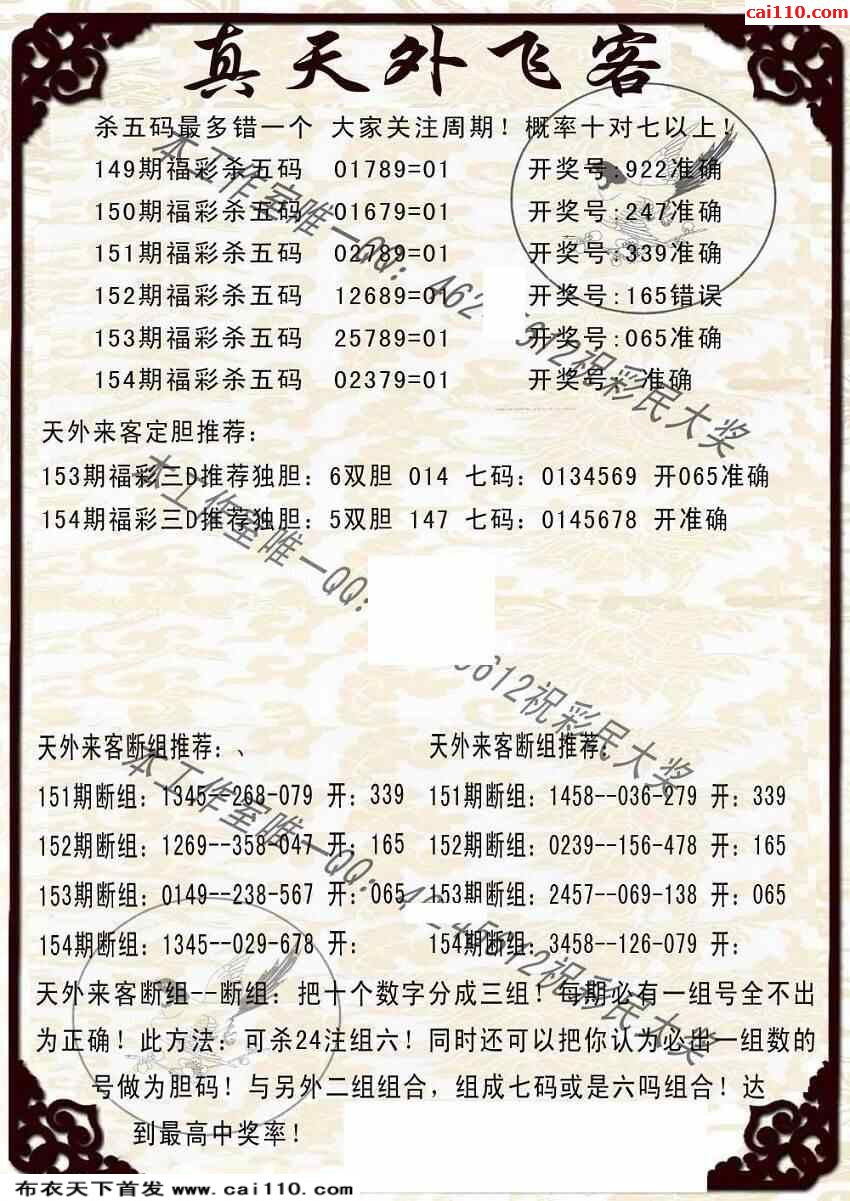 cai110.com
真天外飞客
杀五码最多错一个 大家关注周期！概率十对七以上！
149期福彩杀五码 01789=01 开奖号:922准确
150期福彩杀五码 01679=01 开奖号:247准确
151期福彩杀五码 02789=01 开奖号:339准确
152期福彩杀五码 12689=01 开奖号:165错误
153期福彩杀五码 25789=01 开奖号:065准确
154期福彩杀五码 02379=01 开奖号: 准确
天外来客定胆推荐：
153期福彩三D推荐独胆：6双胆 014 七码：0134569 开065准确
154期福彩三D推荐独胆：5双胆 147 七码：0145678 开准确
天外来客断组推荐：、
151期断组：1345--268-079 开：339
152期断组：1269--358-047 开：165
153期断组：0149--238-567 开：065
154期断组：1345--029-678 开：
天外来客断组推荐：
151期断组：1458--036-279 开：339
152期断组：0239--156-478 开：165
153期断组：2457--069-138 开：065
154期断组：3458--126-079 开：
天外来客断组--断组：把十个数字分成三组！每期必有一组号全不出
为正确！此方法：可杀24注组六！同时还可以把你认为必出一组数的
号做为胆码！与另外二组组合，组成七码或是六吗组合！达
到最高中奖率！
本工作室唯一QQ：462 5612祝彩民大奖
本工作室唯一QQ： 5612祝彩民大奖
本工作室唯一QQ：4 245612祝彩民大奖
布衣天下首发 www.cai110.com